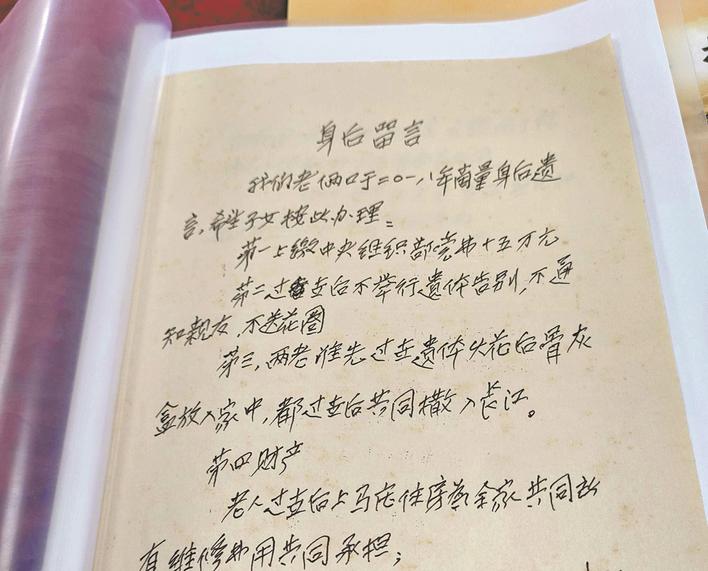 身后留言
我们老俩口于二0一八年商量身后遗
言,希望子女按此办理:
第一上缴中央组织部党费十五万元
第二过世后不举行遗体告别,不通
知亲友,不送花圈
第三,两老谁先过世遗体火花后骨灰
盒放入家中,都过世后共同撒入长江。
第四财产
老人过世后上马庄住房 余家共同所
有维修费用共同承担;